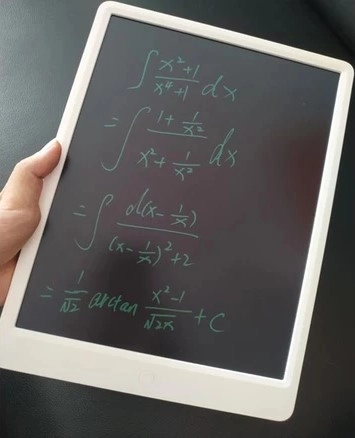 ∫ (x²+1)/(x⁴+1) dx
= ∫ (1 + 1/x²)/(x² + 1/x²) dx
= ∫ d(x − 1/x)/((x − 1/x)² + 2)
= 1/√2 arctan (x²−1)/(√2x) + C